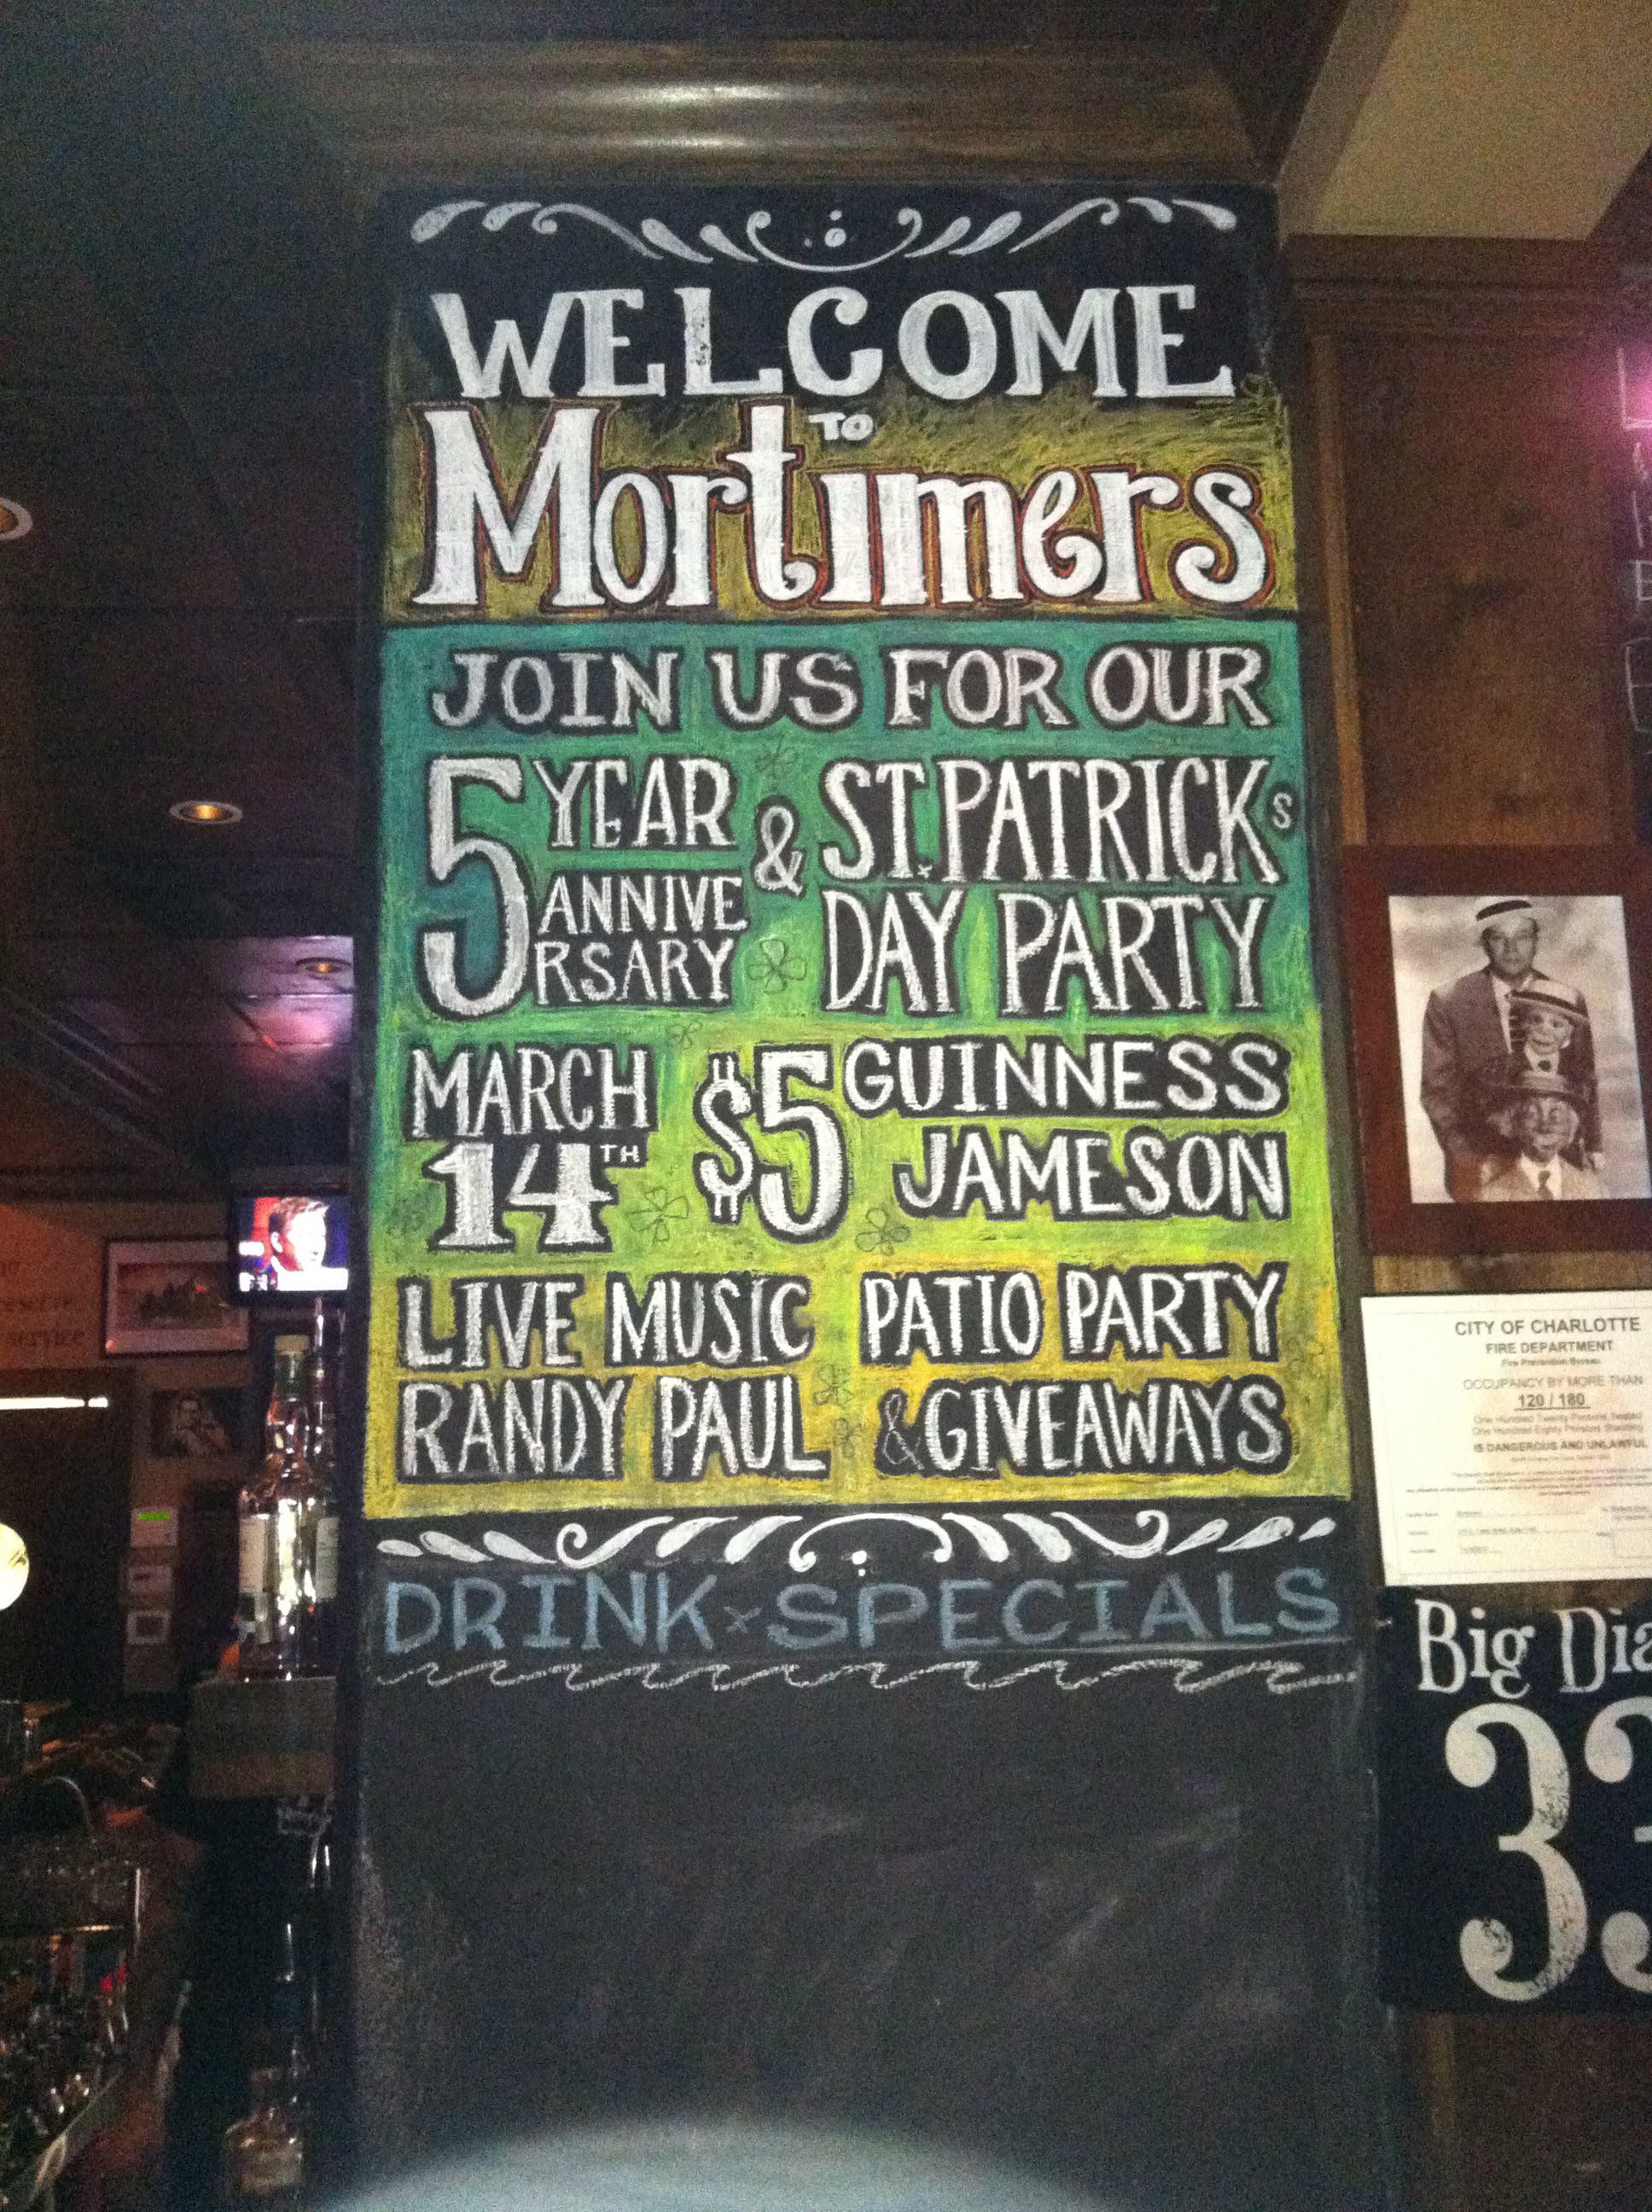 WELCOME
TO
Mortimers
JOIN US FOR OUR
5 YEAR
ANNIVE
RSARY
& ST. PATRICKS
DAY PARTY
MARCH
14TH
$5 GUINNESS
JAMESON
LIVE MUSIC
RANDY PAUL
PATIO PARTY
& GIVEAWAYS
DRINK x SPECIALS
service
CITY OF CHARLOTTE
FIRE DEPARTMENT
Fire Prevention Bureau
OCCUPANCY BY MORE THAN
120 / 180
One Hundred Twenty Persons Seated
One Hundred Eighty Persons Standing
IS DANGEROUS AND UNLAWFUL
Big Dia
33